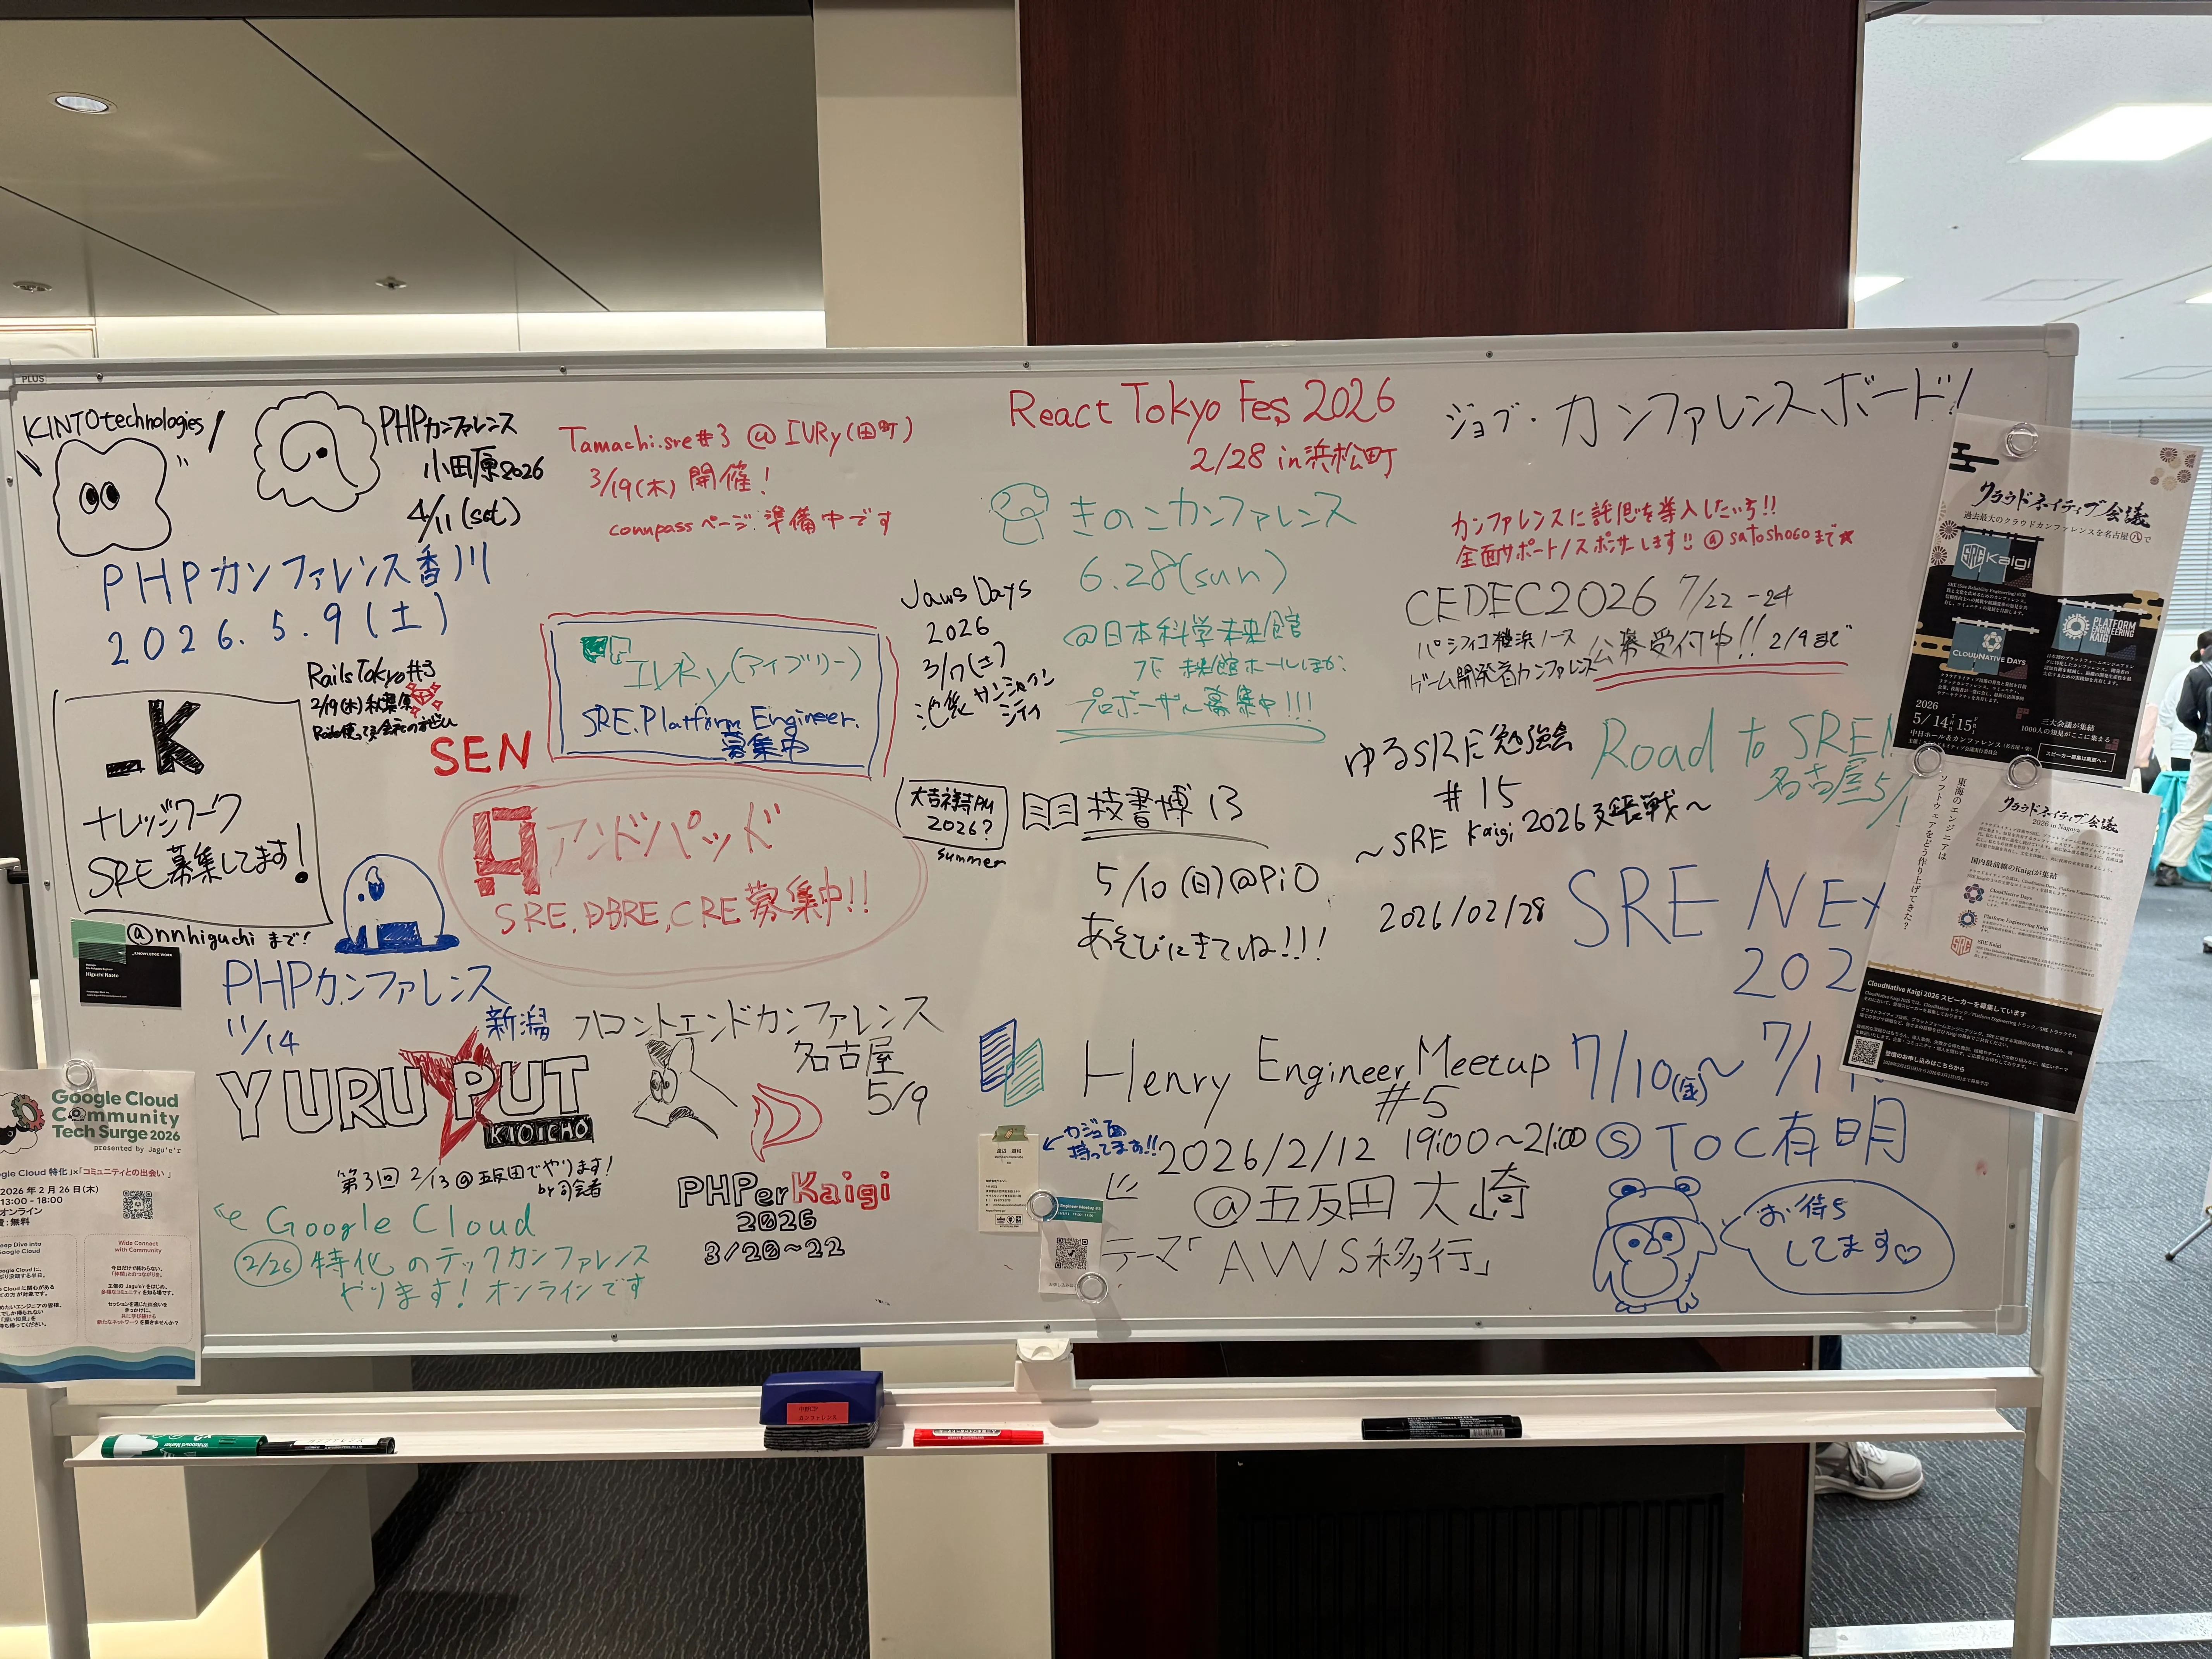 PLUS
KINTOtechnologies
PHPカンファレンス
小田原2026
4/11(sat)
PHPカンファレンス香川
2026.5.9(土)
RailsTokyo#3
2/19(木)秋葉原
SEN
_K
ナレッジワーク
SRE募集してます!
@nnhiguchi まで!
KNOWLEDGE WORK
Higuchi Naoto
Tamachi.sre#3 @ IVRy(田町)
3/19(木) 開催!
connpassページ:準備中です
IVRy(アイブリー)
SRE.Platform Engineer.
募集中
アンドパッド
SRE,DBRE,CRE募集中!!
PHPカンファレンス
新潟
11/14
フロントエンドカンファレンス
名古屋
5/9
YURU PUT
KIOICHO
第3回 2/13@五反田でやります!
by 司会者
Google Cloud
2/26 特化のテックカンファレンス
やります! オンラインです
PHPerKaigi
2026
3/20~22
Google Cloud
Community
Tech Surge 2026
presented by Jagu'e'r
gle Cloud 特化」×「コミュニティとの出会い」
2026年2月26日(木)
13:00 - 18:00
オンライン
費:無料
eep Dive into
Google Cloud
Wide Connect
with Community
React Tokyo Fes 2026
2/28 in浜松町
きのこカンファレンス
6.28(sun)
@日本科学未来館
7F 未来館ホールほか
プロポーザル募集中!!!
Jaws Days
2026
3/7(土)
池袋サンシャイン
シティ
大吉祥寺PM
2026?
summer
技書博13
5/10(日)@PiO
あそびにきてね!!!
Henry Engineer Meetup
#5
2026/2/12 19:00~21:00
@五反田 大崎
テーマ「AWS移行」
カジュ面
持ってます!!
Engineer Meetup #5
ジョブ・カンファレンスボード!
カンファレンスに託児を導入したいち!!
全面サポート/スポンサーします!! @satosho60まで★
CEDEC2026 7/22-24
パシフィコ横浜ノース
公募受付中!! 2/9まで
ゲーム開発者カンファレンス
ゆるSRE勉強会
#15
~SRE Kaigi 2026延長戦~
2026/02/28
Road to SRE N
名古屋5/
SRE NEX
202
7/10(金)~7/1
@TOC有明
お待ち
してます♡
クラウドネイティブ会議
過去最大のクラウドカンファレンスを名古屋で
SRE Kaigi
PLATFORM
ENGINEERING
KAIGI
CLOUDNATIVE DAYS
2026
5/14 15
中日ホール&カンファレンス(名古屋・栄)
三大会議が集結
1000人の知見がここに集まる
スピーカー募集は裏面へ→
東海のエンジニアは
ソフトウェアをどう作り上げてきた?
クラウドネイティブ会議
2026 in Nagoya
国内最前線のKaigiが集結
CloudNative Days
Platform Engineering Kaigi
SRE Kaigi
CloudNative Kaigi 2026 スピーカーを募集しています
登壇のお申し込みはこちらから